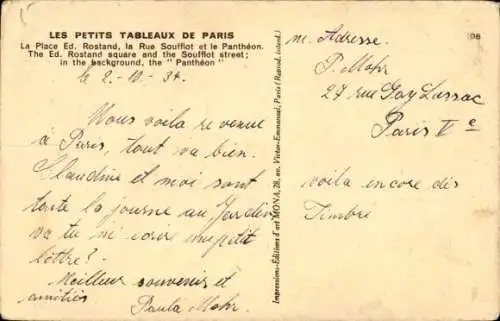 LES PETITS TABLEAUX DE PARIS
La Place Ed. Rostand, la Rue Soufflot et le Panthéon.
The Ed. Rostand square and the Soufflot street;
in the background, the " Panthéon "
le 2-10-34
Nous voila re venue
à Paris, tout va bien.
Claudine et moi sont
toute la journe au Jardin
va tu ni ecrire une petit
lôttre?
Meilleur souvenirs et
amitiés
Paula Mohr
Impressions-Editions d'art MONA, 28, av. Victor-Emmanuel, Paris (Reprod. interd.)
m. Adresse.
P. Mohr
27 rue Gay Lussac
Paris V e
voila encore des
Timbre